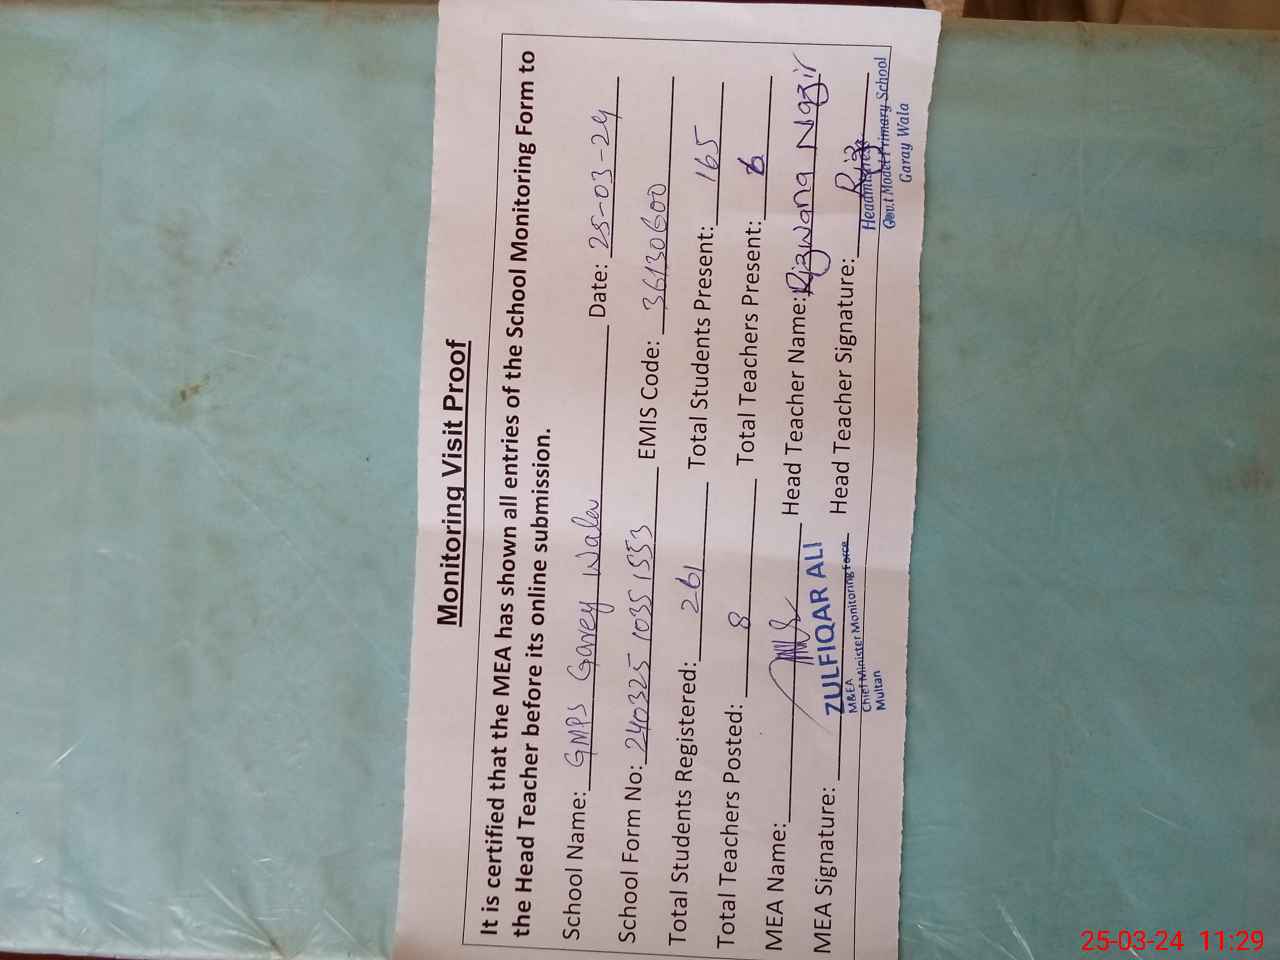 Monitoring Visit Proof
It is certified that the MEA has shown all entries of the School Monitoring Form to
the Head Teacher before its online submission.
School Name: GMPS Garey Wala Date: 25-03-24
School Form No: 240325 1035 1553 EMIS Code: 36130600
Total Students Registered: 261 Total Students Present: 165
Total Teachers Posted: 8 Total Teachers Present: 6
MEA Name: Head Teacher Name: Rizwana Nazir
MEA Signature: Head Teacher Signature: Riz
ZULFIQAR ALI
M&EA
Chief Minister Monitoring Force
Multan
Headmistress
Govt Model Primary School
Garay Wala
25-03-24 11:29